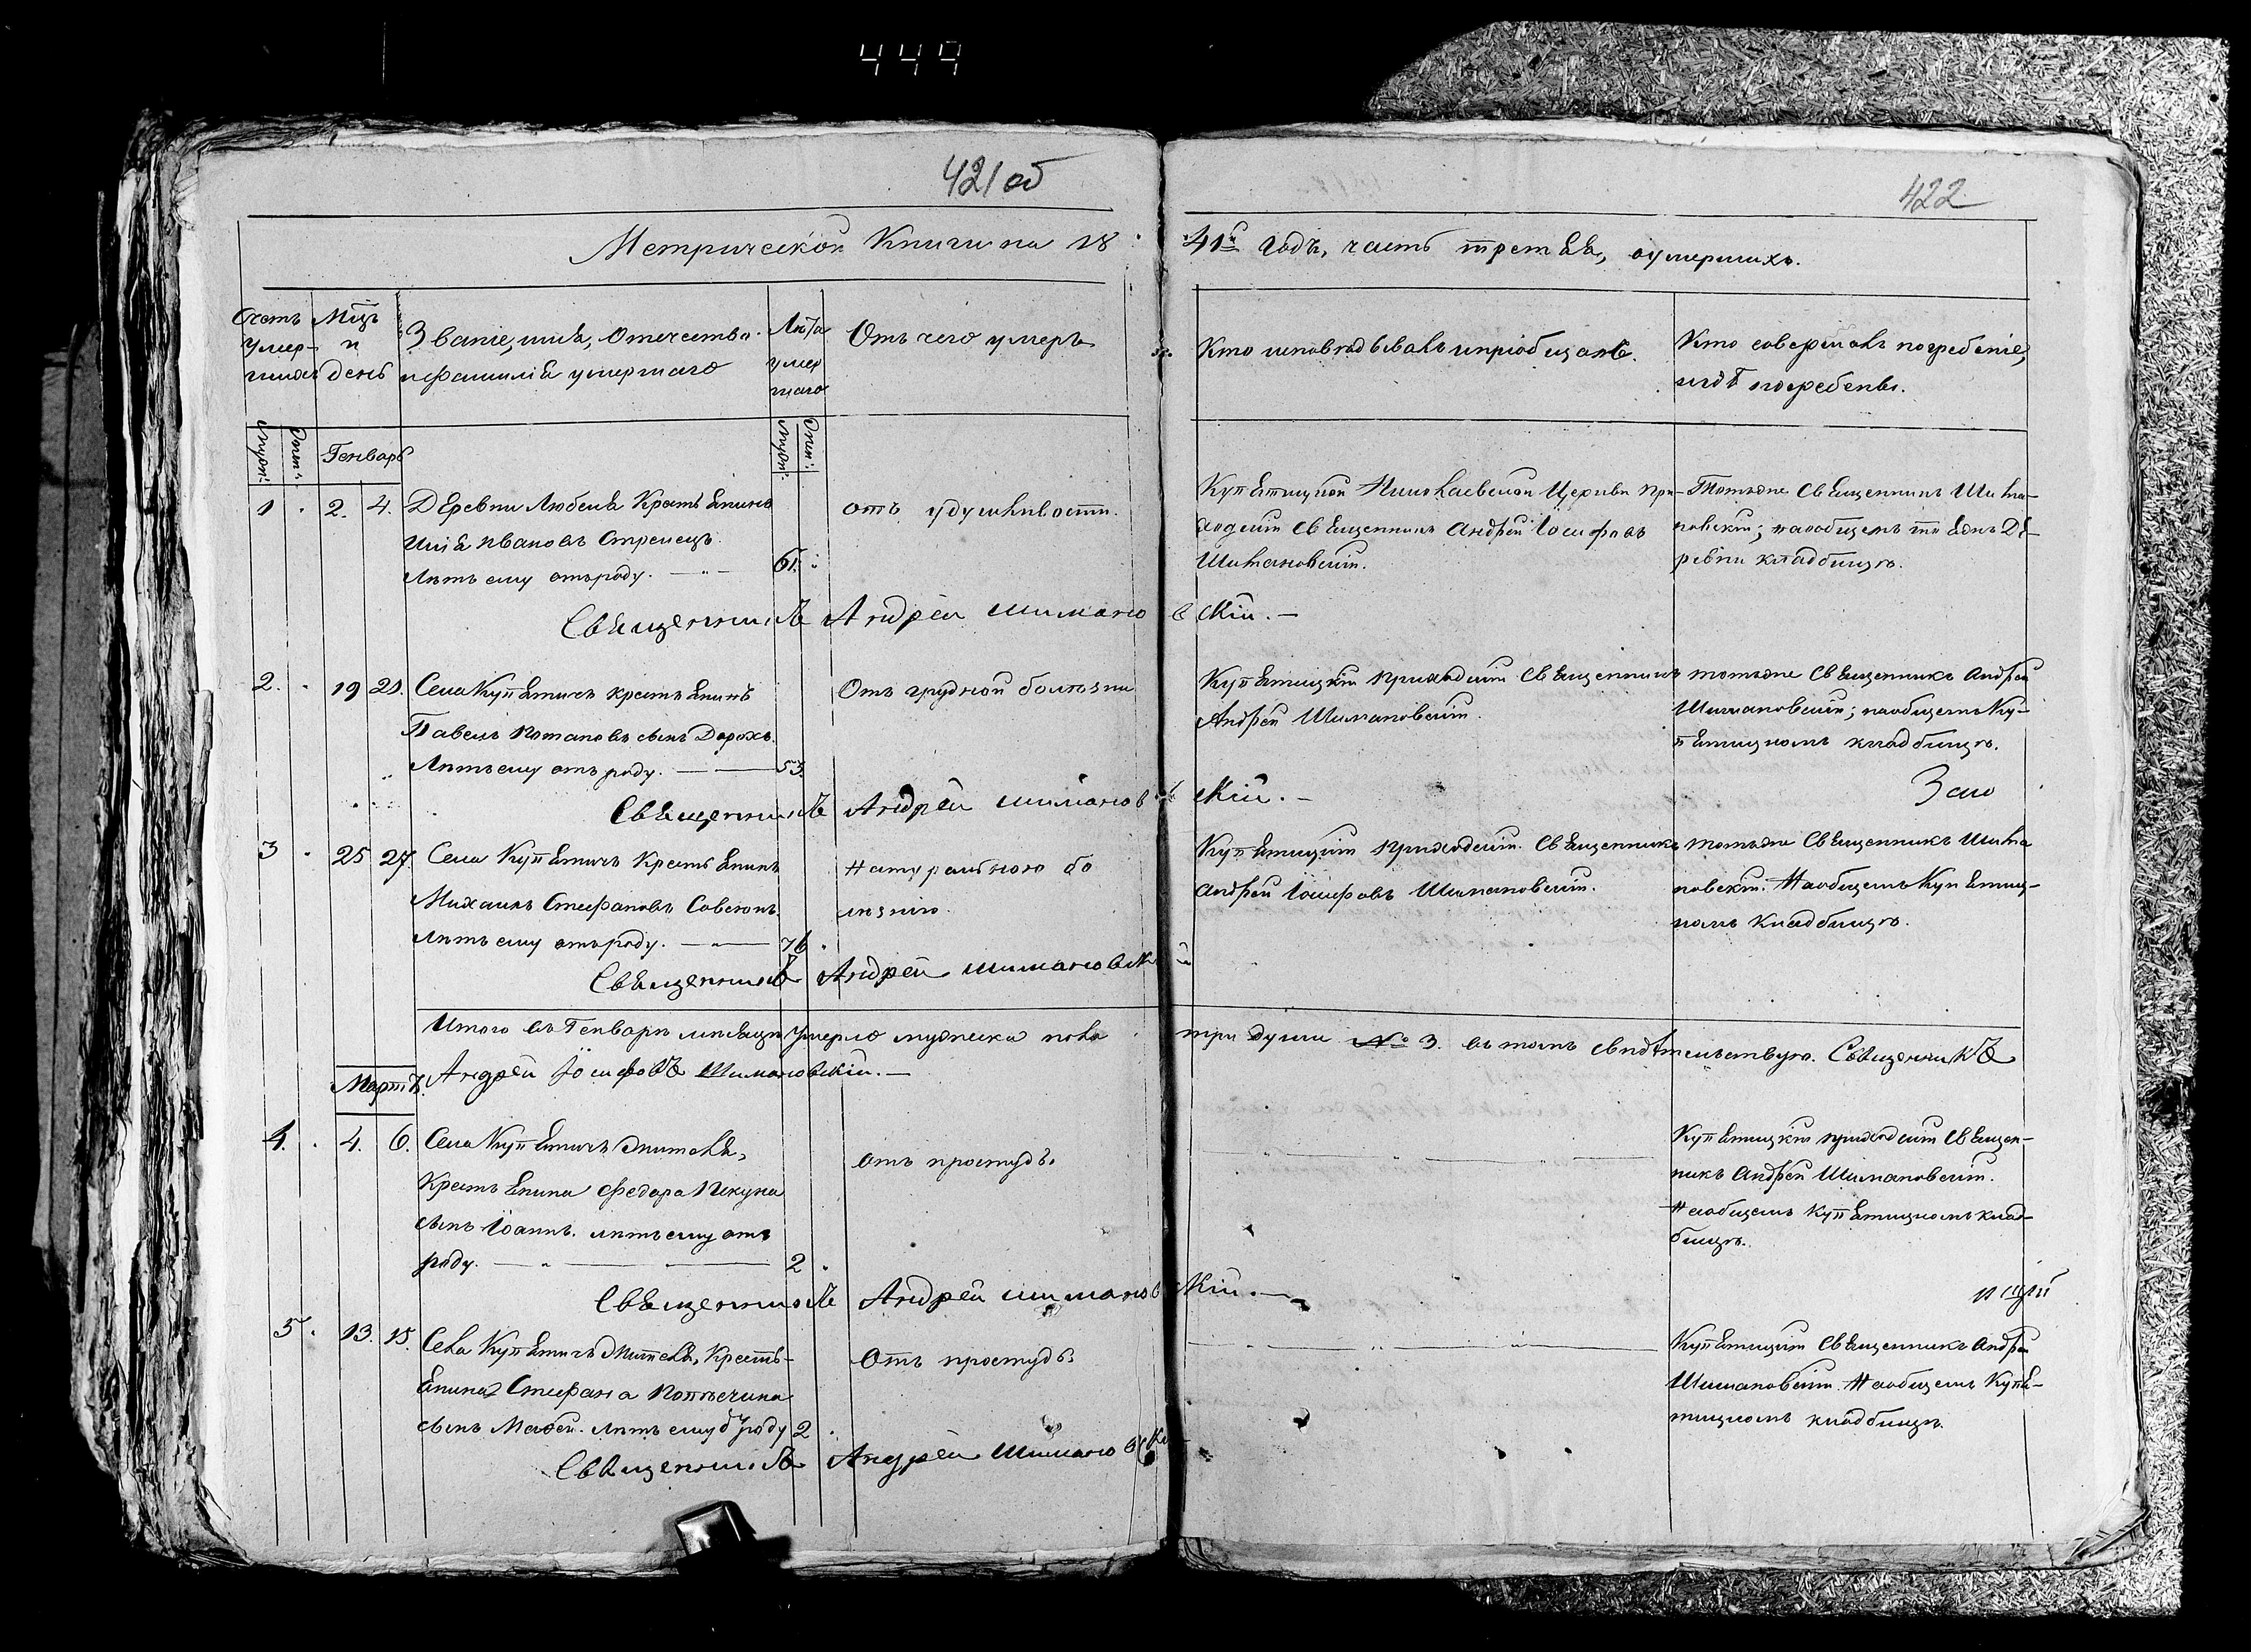 449
421 об
422
Метрической Книги на 18
41й годъ, часть третья, о умершихъ.
Счетъ умер-шихъ
Мцъ и день
Званіе, имя, отечество и фамилія умершаго
Лѣта умер шаго
Отъ чего умеръ
Кто исповѣдывалъ и пріобщалъ.
Кто совершалъ погребеніе, и гдѣ погребены.
Генварь
1 2. 4.
Деревни Любеля Крестьянинъ
Иванов Стрелецъ
Лѣтъ ему отъ роду. 61.
отъ удушливости.
Купятицкой Николаевской Церкви при-
ходскій Священникъ Андрей Іосифовъ
Шимановскій.
Тотъ же Священникъ Шима-
новскій; на общемъ той же Де-
ревни кладбищѣ.
Священникъ Андрей Шимановскій. —
2. 19 21.
Села Купятичъ крестьянинъ
Павелъ Потаповъ сынъ Дорохъ.
Лѣтъ ему отъ роду. — 53.
Отъ грудной болѣзни
Купятицкій приходскій Священникъ
Андрей Шимановскій.
тотъ же Священникъ Андрей
Шимановскій; на общемъ Ку-
пятицкомъ кладбищѣ.
Священникъ Андрей Шимановскій. —
3 25 27.
Села Купятичъ Крестьянинъ
Михаилъ Стефановъ
лѣтъ ему отъ роду. — 76
Натуральною бо
лѣзнію.
Купятицкій приходскій Священникъ
Андрей Іосифовъ Шимановскій.
тотъ же Священникъ Шима
новскій. На общемъ Купятиц-
комъ Кладбищѣ.
Священникъ Андрей Шимановскій
Итого въ Генварѣ мѣсяцѣ умерло мужеска пола три души № 3. въ томъ свидѣтельствую. Священникъ
Андрей Іосифовъ Шимановскій. —
Мартъ.
4. 4. 6.
Села Купятичъ жителя,
Крестьянина Федора Пекуна
сынъ Іоаннъ. лѣтъ ему отъ
роду. — 2
отъ простуды.
Купятицкій приходскій Священ-
никъ Андрей Шимановскій.
На общемъ Купятицкомъ клад-
бищѣ.
Священникъ Андрей Шимановскій. —
5. 13. 15.
Села Купятичъ жителя, Кресть-
янина Стефана
сынъ лѣтъ ему отъ роду 2
Отъ простуды
Купятицкій Священникъ Андрей
Шимановскій. На общемъ Купя-
тицкомъ кладбищѣ.
Священникъ Андрей Шимановскій